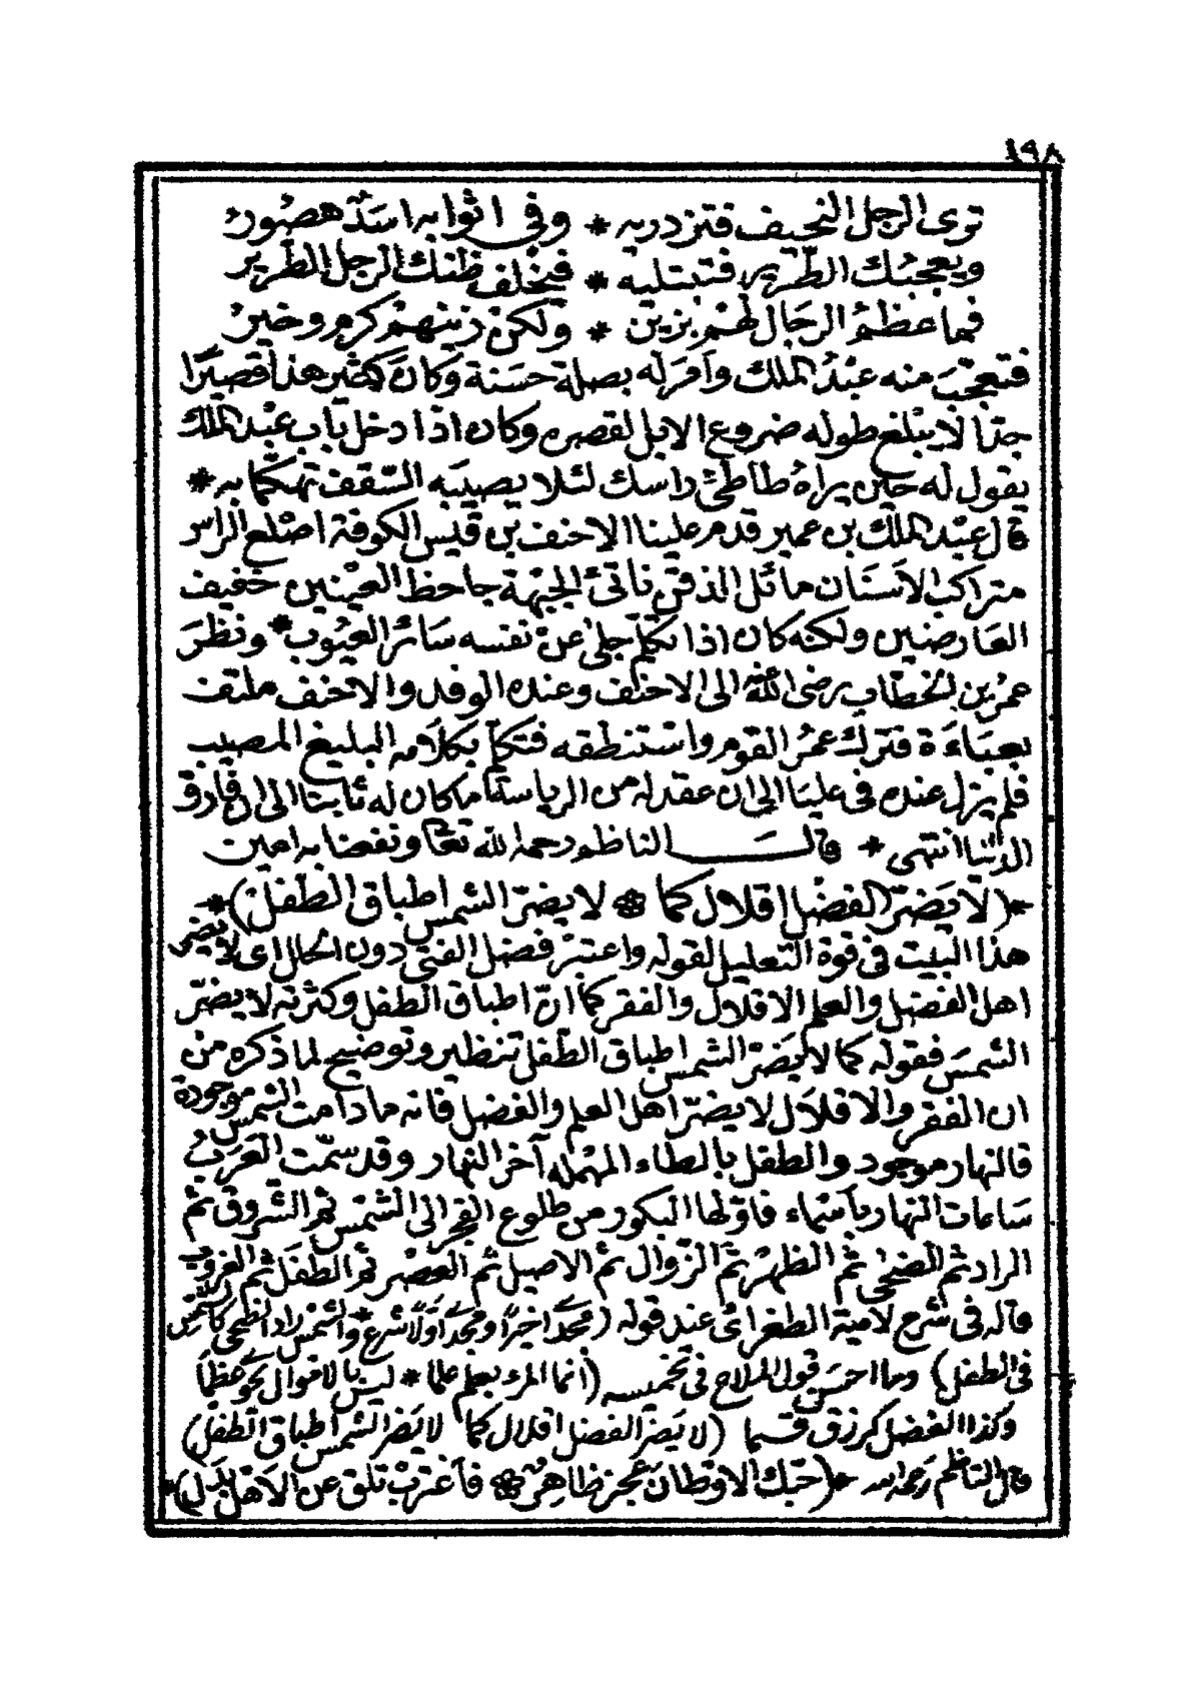 ١٩٨
ترى الرجل النحيف فتزدريه * وفي اثوابه اسد هصور
ويعجبك الطرير فتبتليه * فيخلف ظنك الرجل الطرير
فما عظم الرجال لهم بزين * ولكن زينهم كرم وخير
فتعجب منه عبد الملك وامر له بصلة حسنة وكان كثير هذا قصيرا
جدا لا يبلغ طوله ضروع الابل لقصره وكان اذا دخل باب عبد الملك
يقول له حين يراه طاطئ راسك لئلا يصيبه السقف تهكما به *
قال عبد الملك بن عمير قدم علينا الاحنف بن قيس الكوفة اصلع الراس
متراكب الاسنان مائل الذقن ناتئ الجبهة جاحظ العينين خفيف
العارضين ولكنه كان اذا تكلم جلى عن نفسه سائر العيوب * ونظر
عمر بن الخطاب رضى الله عنه الى الاحنف وعنده الوفد والاحنف ملتف
بعباءة فترك عمر القوم واستنطقه فتكلم بكلامه البليغ المصيب
فلم يزل عنده فى عليا الى ان عقد له من الرياسة ما كان له ثابتا الى ان فارق
الدنيا انتهى * قال الناظم رحمه الله تعالى ونفعنا به امين
*(لا يضر الفضل اقلال كما * لا يضر الشمس اطباق الطفل)*
هذا البيت فى قوة التعليل لقوله واعتبر فضل الفتى دون الحلل اى لا يضر
اهل الفضل والعلم الاقلال والفقر كما ان اطباق الطفل وكثرته لا يضر
الشمس فقوله كما لا يضر الشمس اطباق الطفل تنظير وتوضيح لما ذكره من
ان الفقر والاقلال لا يضر اهل العلم والفضل فانه ما دامت الشمس موجودة
فالنهار موجود والطفل بالطاء المهمله آخر النهار وقد سمت العرب
ساعات النهار باسماء فاولها البكور من طلوع الفجر الى الشمس ثم الشروق ثم
الراد ثم الضحى ثم الظهر ثم الزوال ثم الاصيل ثم العصر ثم الطفل ثم الغروب
قاله فى شرح لامية الطغرائى عند قوله (مجدى اخيرا ومجدى اولا شرع * والشمس راد الضحى كالشمس
فى الطفل) وما احسن قول الملاح فى تخميسه (انما المرء بعلم علما * ليس بالاقوال نحو عظما
وكذا الفضل كرزق قسما (لا يضر الفضل اقلال كما لا يضر الشمس اطباق الطفل)
قال الناظم رحمه الله *(حبك الاوطان عجز ظاهر * فاغترب تلق عن الاهل بدل)*